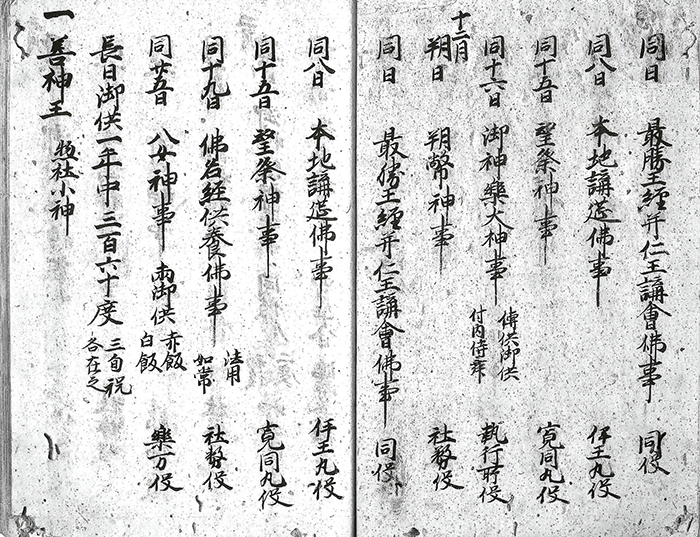 同日 最勝王經并仁王講會佛事 同役
同八日 本地講莚佛事 伊王丸役
同十五日 望祭神事 寛同丸役
同十六日 御神樂大神事 傳供御供 付内侍舞 執行所役
十二月
朔日 朔幣神事 社務役
同日 最勝王經并仁王講會佛事 同役
同八日 本地講莚佛事 伊王丸役
同十五日 望祭神事 寛同丸役
同十九日 佛名經供養佛事 法用 如常 社務役
同廿五日 八女神事 両御供 赤飯 白飯 樂万役
長日御供一年中三百六十度 三旬祝 各在之
一 善神王 惣社小神